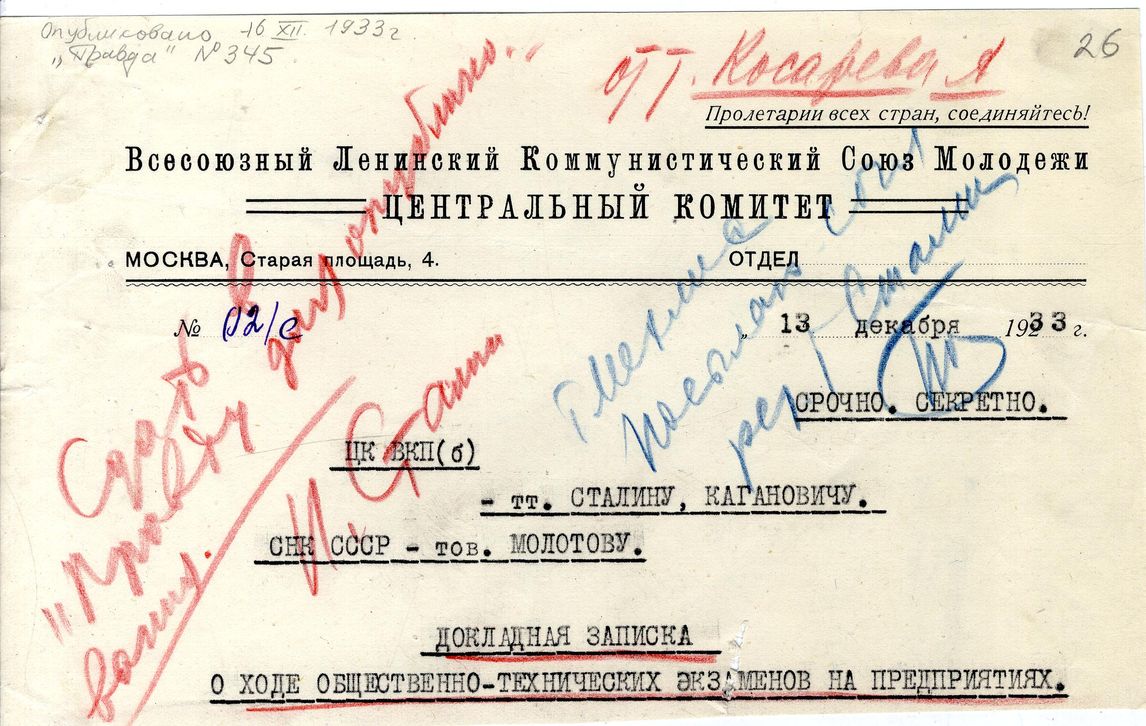 Опубликовано 16 XII. 1933 г
„Правда" № 345
от т. Косарева
26
Пролетарии всех стран, соединяйтесь!
Всесоюзный Ленинский Коммунистический Союз Молодежи
ЦЕНТРАЛЬНЫЙ КОМИТЕТ
МОСКВА, Старая площадь, 4.
ОТДЕЛ
№ 02/с
„ 13 декабря 1933 г.
СРОЧНО. СЕКРЕТНО.
ЦК ВКП(б)
- тт. СТАЛИНУ, КАГАНОВИЧУ.
СНК СССР - тов. МОЛОТОВУ.
Сдать в
"Правду для опублико-
вания.
И. Сталин
ДОКЛАДНАЯ ЗАПИСКА
О ХОДЕ ОБЩЕСТВЕННО-ТЕХНИЧЕСКИХ ЭКЗАМЕНОВ НА ПРЕДПРИЯТИЯХ.